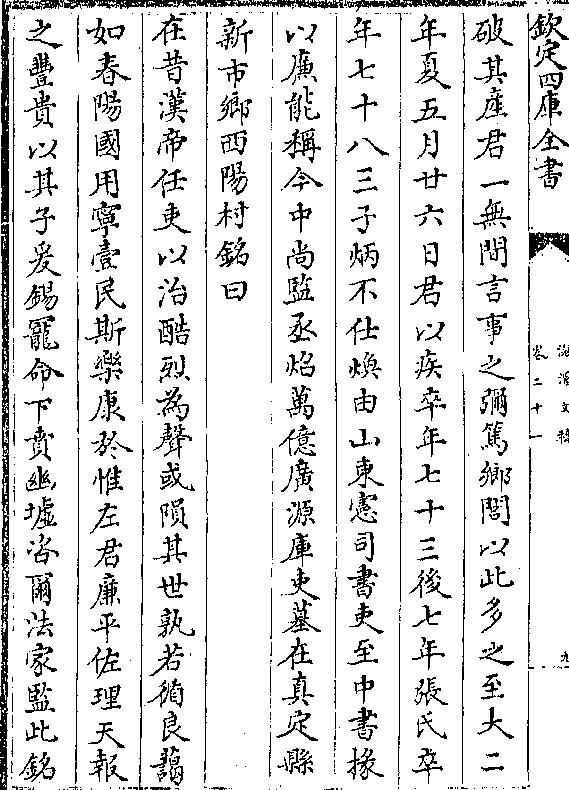 欽定四庫全書
滋溪文稿
卷二十一
九
破其產君一無間言事之彌篤鄉閭以此多之至大二
年夏五月廿六日君以疾卒年七十三後七年張氏卒
年七十八三子炳不仕煥由山東憲司書吏至中書掾
以廉能稱今中尚監丞焰萬億廣源庫吏墓在真定縣
新市鄉西陽村銘曰
在昔漢帝任吏以治酷烈為聲或隕其世孰若循良藹
如春陽國用寧壹民斯樂康於惟左君廉平佐理天報
之豐貴以其子爰錫寵命下賁幽墟咨爾法家監此銘